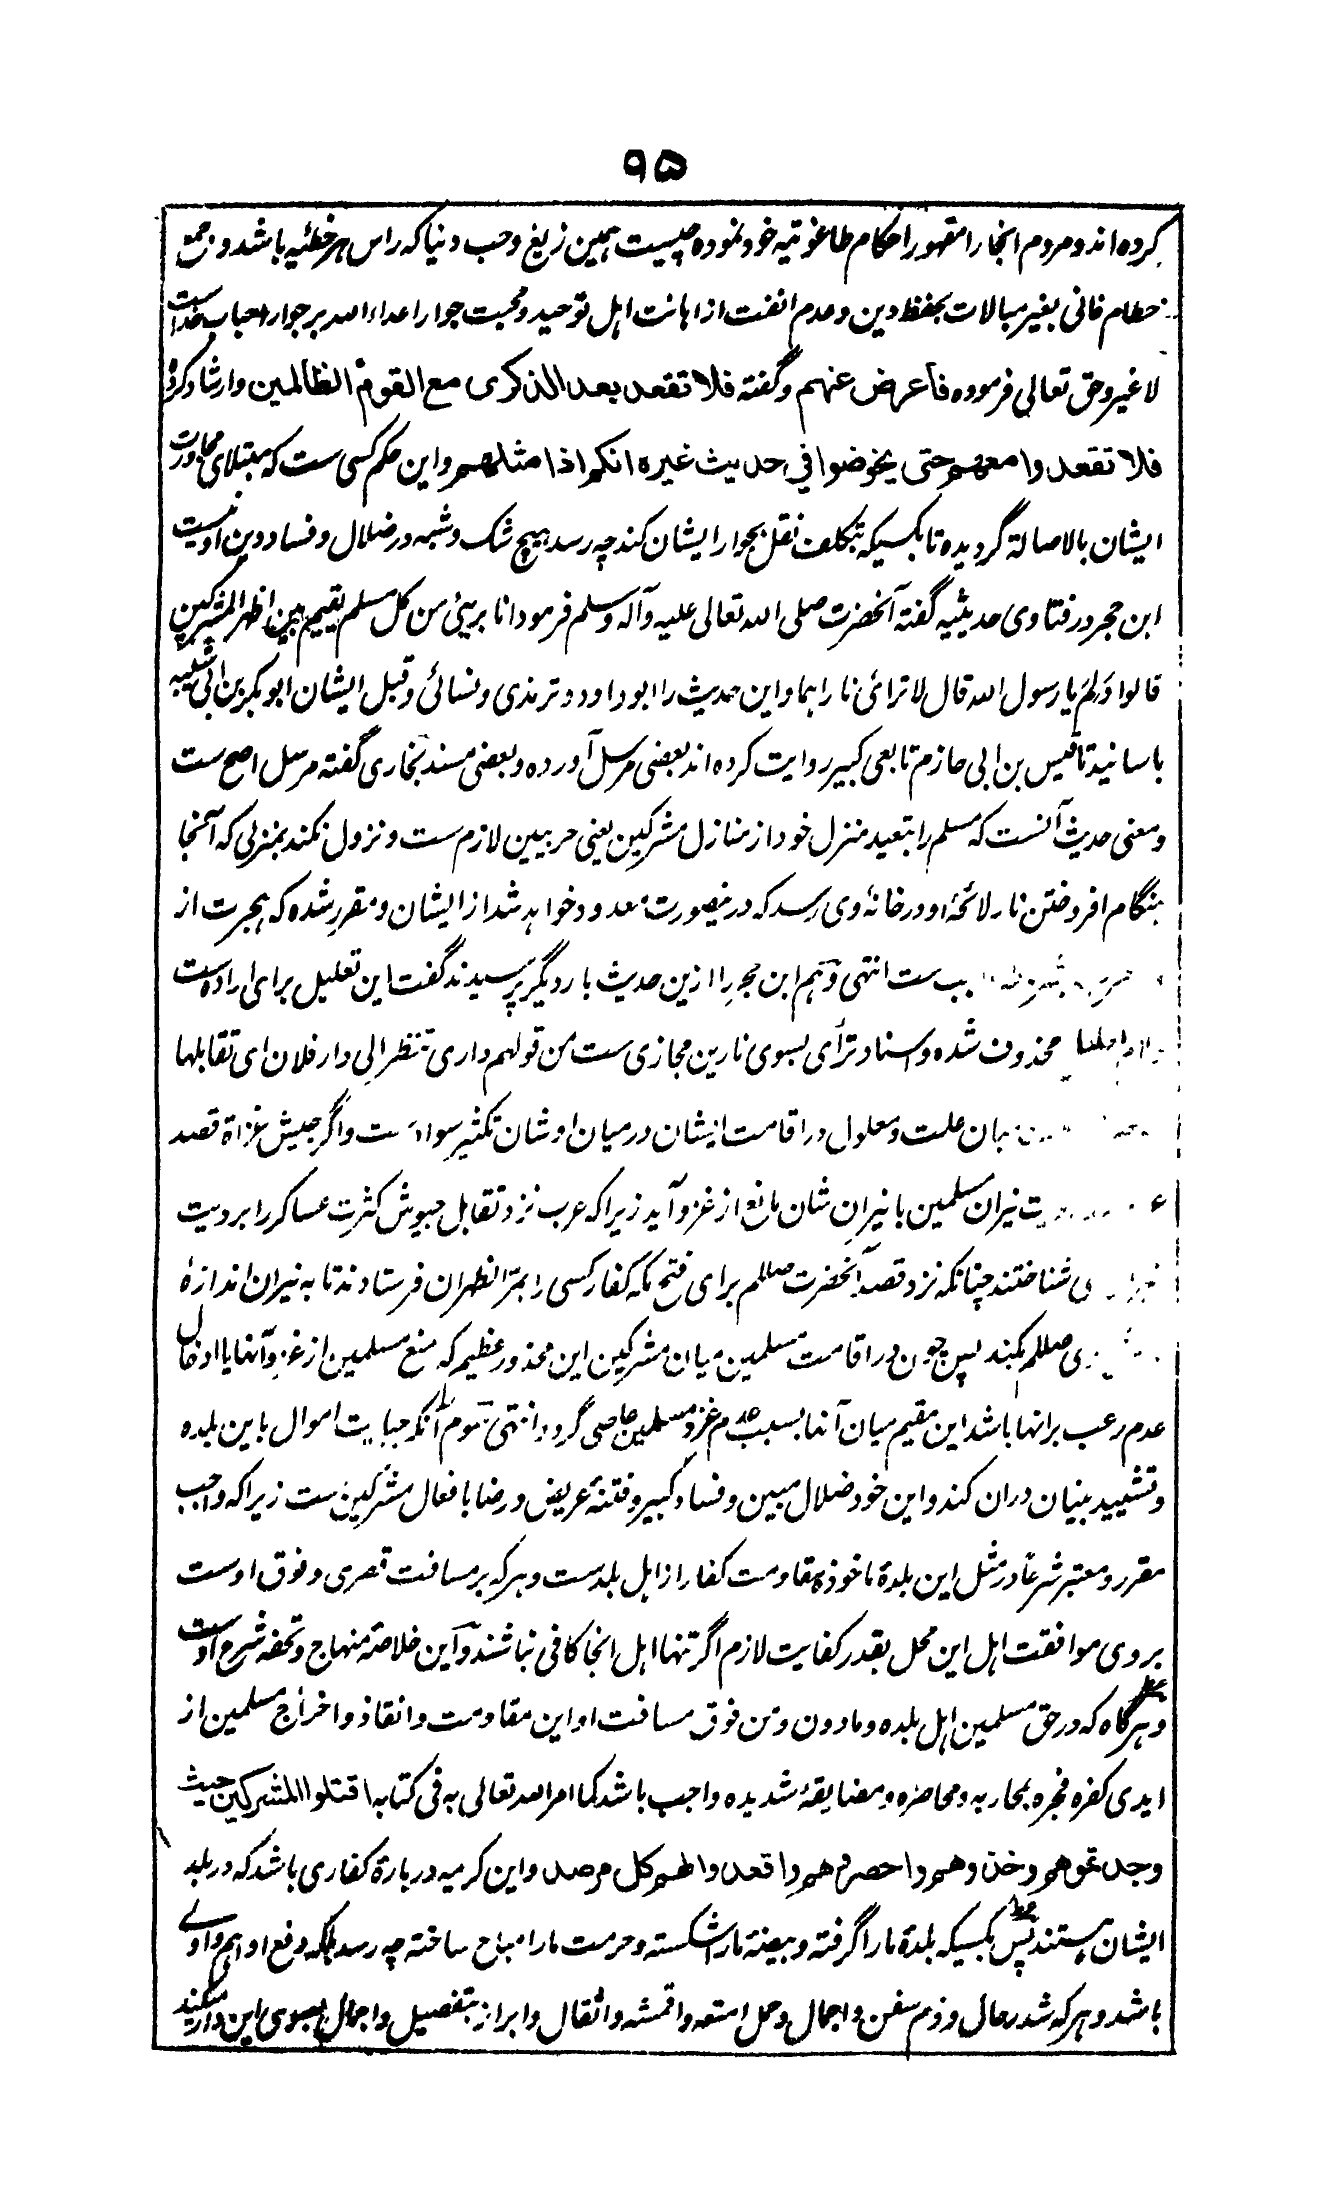 ۹۵
کرده اند و مردم انجا را مقهور احکام طاغوتیه خود نموده چیست همین زیغ و حب دنیا که راس هر خطئیه باشد و جمع
حطام فانی بغیر مبالات بحفظ دین و عدم انفت از اهانت اهل توحید و محبت جوار اعداء الله بر جوار احباب خداست
لا غیر و حق تعالی فرموده فاعرض عنهم و گفته فلا تقعد بعد الذکری مع القوم الظالمین و ارشاد کرده
فلا تقعدوا معهم حتی یخوضوا فی حدیث غیره انکم اذا مثلهم و این حکم کسی ست که مبتلای مجاورت
ایشان بالاصالة گردیده تا بکسیکه بتکلف نقل بجوار ایشان کند چه رسد هیچ شک و شبه در ضلال و فساد دین او نیست
ابن حجر در فتاوی حدیثیه گفته آنحضرت صلی الله تعالی علیه و آله و سلم فرمود انا بریئ من کل مسلم یقیم بین اظهر المشرکین
قالوا ولم یا رسول الله قال لا ترائ نارا هما و این حدیث را ابو داود و ترمذی و نسائی و قبل ایشان ابو بکر بن ابی شیبه
باسانید تا قیس بن ابی حازم تابعی کبیر روایت کرده اند بعضی مرسل آورده و بعضی مسند بخاری گفته مرسل اصح ست
و معنی حدیث آنست که مسلم را تبعید منزل خود از منازل مشرکین یعنی حربیین لازم ست و نزول نکند بمنزلی که آنجا
بنگام افروختن نار لائحۀ او در خانۀ وی رسد که درینصورت معدود خواهد شد از ایشان و مقرر شده که هجرت از
ست انتهی و هم ابن حجر را ازین حدیث بار دیگر پرسیدند گفت این تعلیل برای اراده ست
محذوف شده و اسناد ترأی بسوی نارین مجازی ست من قولهم داری تنظر الی دار فلان ای تقابلها
میان علت و معلول در اقامت ایشان در میان اوشان تکثیر سواد ست و اگر جیش غزاة قصد
نیران مسلمین با نیران شان مانع از غزو آید زیرا که عرب نزد تقابل جیوش کثرت عساکر را برویت
شناختند چنانکه نزد قصد آنحضرت صللم برای فتح مکه کفار کسی را بمر الظهران فرستادند تا به نیران اندازۀ
صللم بکند پس چون در اقامت مسلمین میان مشرکین این محذور عظیم که منع مسلمین از غزو آنها یا ادخال
عدم رعب بر انها باشد این مقیم میان آنها بسبب عدم غزو مسلمین عاصی گردد انتهی سوم آنکه جبایت اموال باین بلده
و تشیید بنیان دران کند و این خود ضلال مبین و فساد کبیر و فتنۀ عریض و رضا بافعال مشرکین ست زیرا که واجب
مقرر و معتبر شرعا در مثل این بلدۀ ماخوذه مقاومت کفار از اهل بلدست و هر که بر مسافت قصری و فوق اوست
بروی موافقت اهل این محل بقدر کفایت لازم اگر تنها اهل انجا کافی نباشند و این خلاصۀ منهاج و تحفه شرح اوست
و هرگاه که در حق مسلمین اهل بلده و مادون و من فوق مسافت او این مقاومت و انقاذ و اخراج مسلمین از
ایدی کفره فجره بمحاربه و محاصره و مضایقۀ شدیده واجب باشد کما امر الله تعالی به فی کتابه اقتلوا المشرکین حیث
وجدتموهم وخذوهم واحصروهم واقعدوا لهم کل مرصد و این کریمه در بارۀ کفاری باشد که در بلد
ایشان هستند پس بکسیکه بلدۀ ما را گرفته و بیضۀ ما را شکسته و حرمت ما را مباح ساخته چه رسد بلکه دفع او اهم و اولے
باشد و هر که شد رحال و زم سفن و اجمال و حمل امتعه و اقمشه و اثقال و ابراز بتفصیل و اجمال بسوی این دار میکند